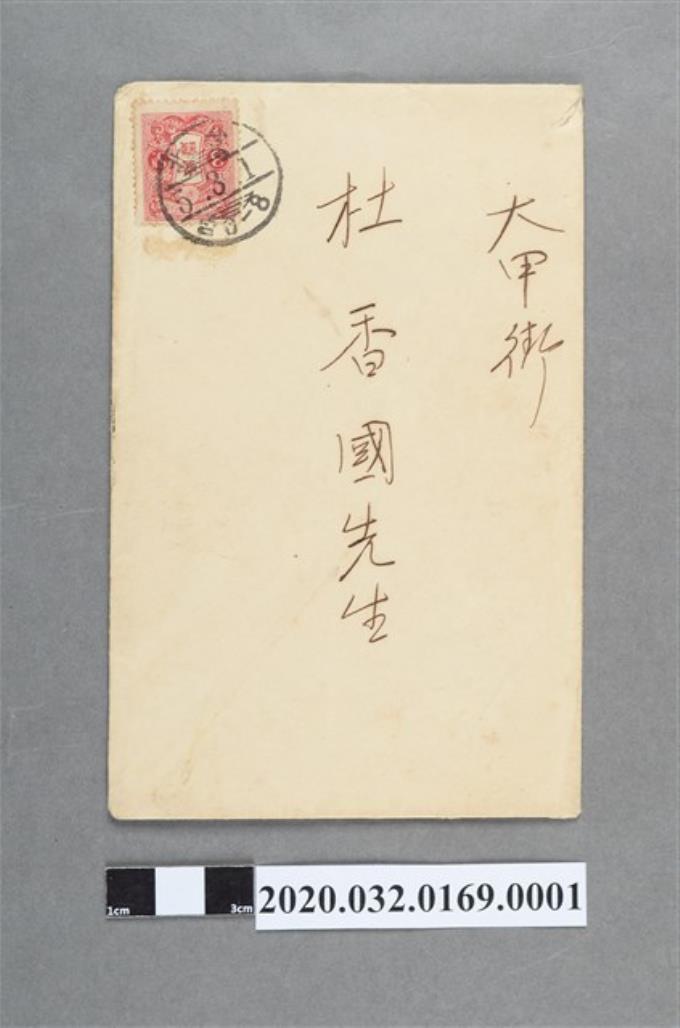 大甲街
杜香國先生
1cm
3cm
2020.032.0169.0001